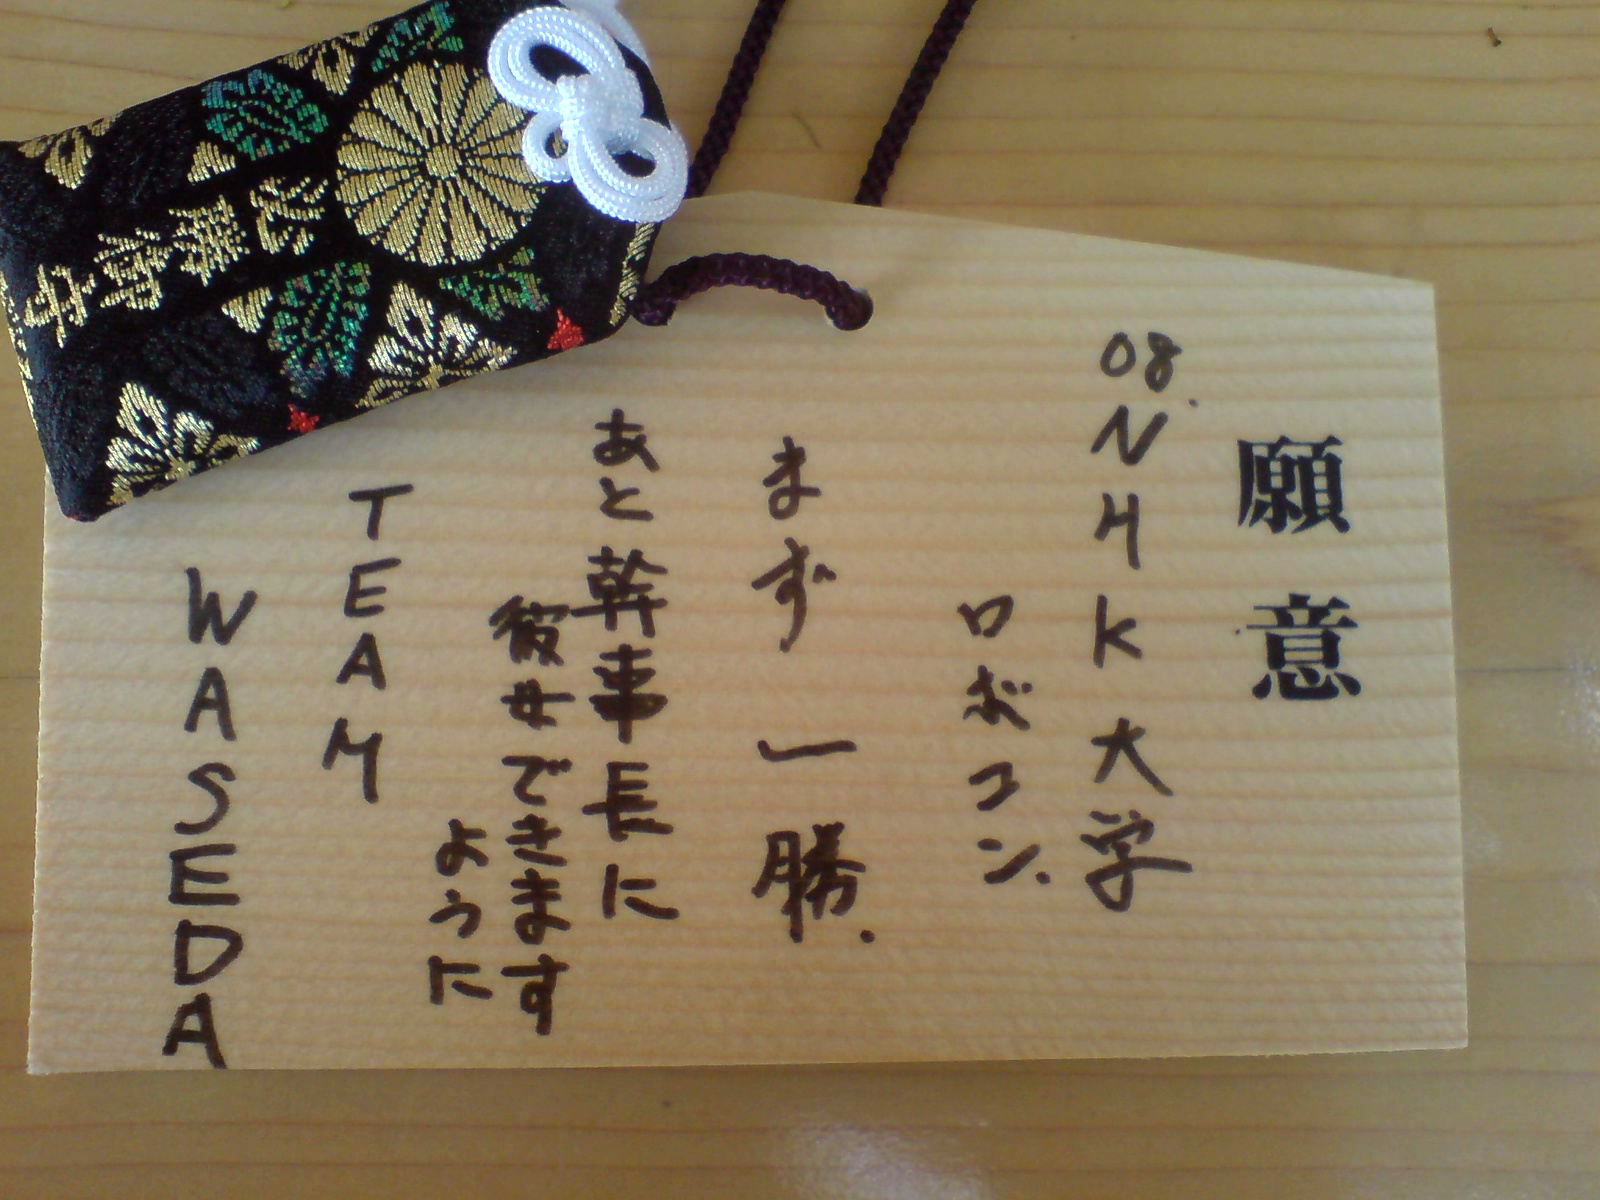 願意
08.NHK大学
ロボコン.
まず一勝.
あと幹事長に
彼女できます
ように
TEAM
WASEDA
勝御守